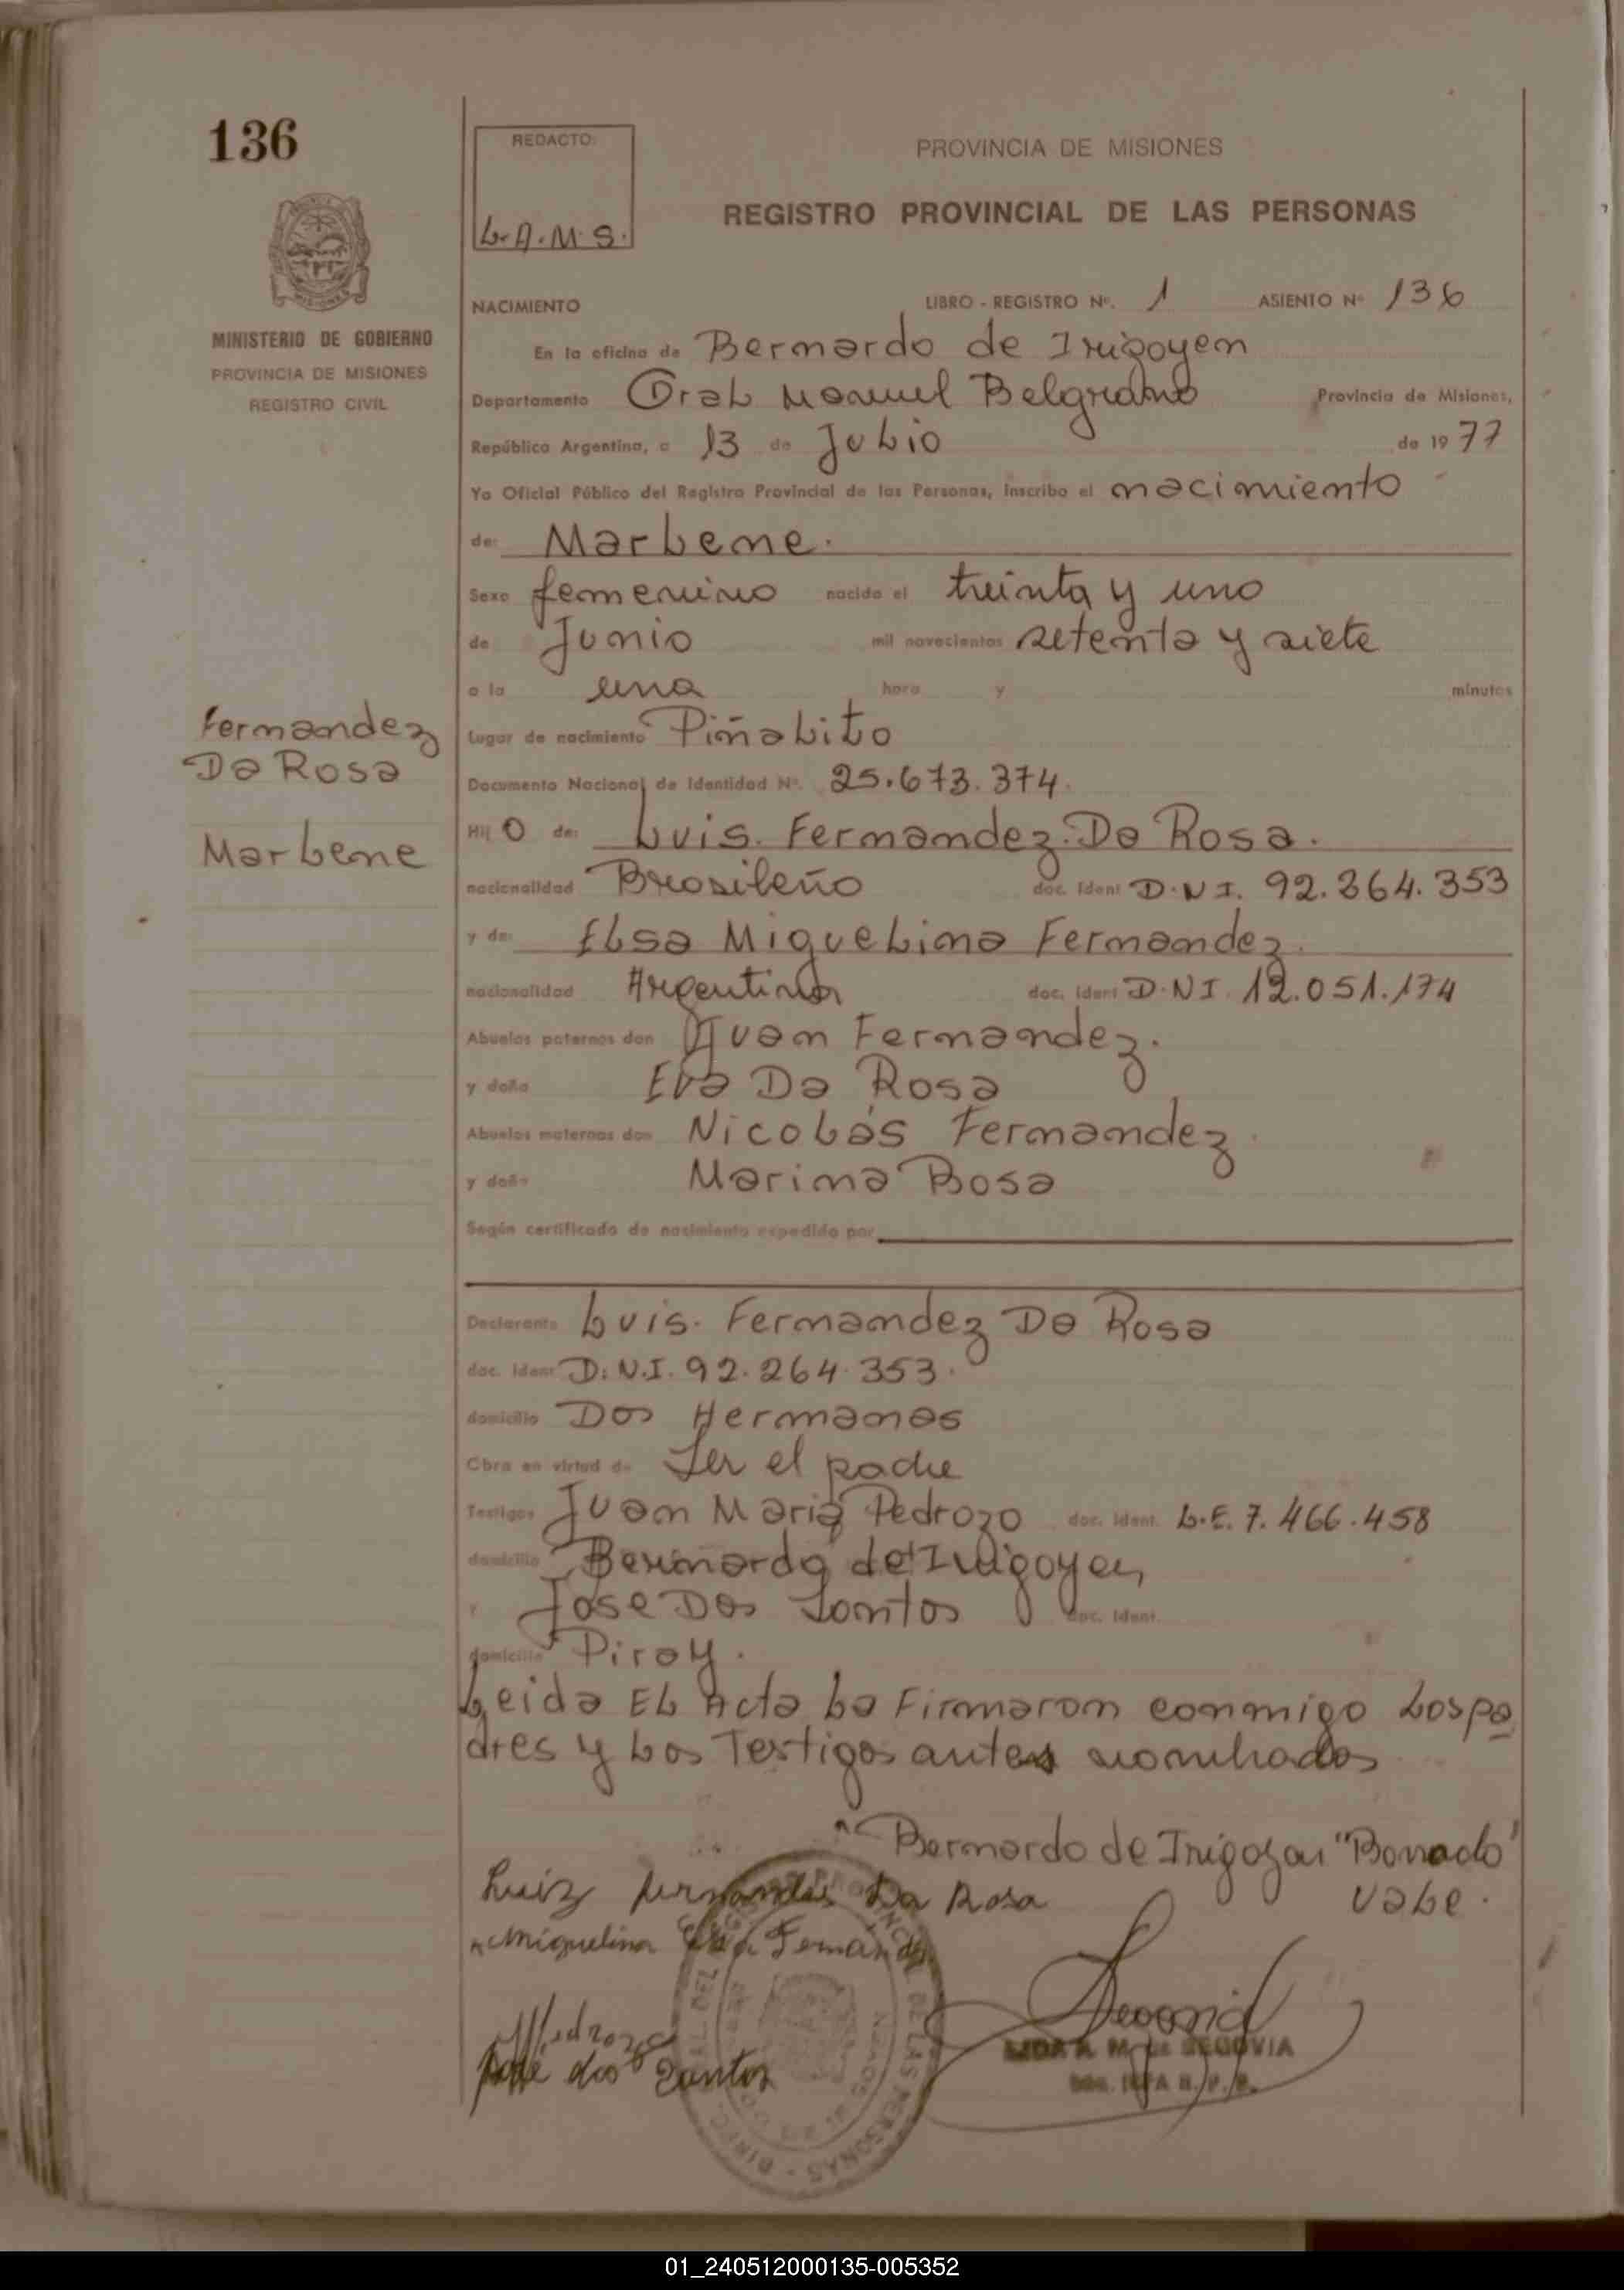 136
REDACTO:
L.A.M.S.
PROVINCIA DE MISIONES
REGISTRO PROVINCIAL DE LAS PERSONAS
MINISTERIO DE GOBIERNO
PROVINCIA DE MISIONES
REGISTRO CIVIL
NACIMIENTO LIBRO - REGISTRO Nº. 1 ASIENTO Nº 136
En la oficina de Bernardo de Irigoyen
Departamento Gral Manuel Belgrano Provincia de Misiones,
República Argentina, a 13 de Julio de 1977
Yo Oficial Público del Registro Provincial de las Personas, inscribo el nacimiento
de: Marlene.
Sexo femenino nacido el treinta y uno
de Junio mil novecientos setenta y siete
a la una hora y minutos
Lugar de nacimiento Piñalito
Fernandez
Da Rosa
Marlene
Documento Nacional de Identidad Nº. 25.673.374.
Hij O de: Luis. Fernandez. Da Rosa.
nacionalidad Brasileño doc. Ident D.N.I. 92.264.353
y de: Elsa Miguelina Fernandez.
nacionalidad Argentina doc. Ident D.N.I. 12.051.174
Abuelos paternos don Juan Fernandez.
y doña Eva Da Rosa
Abuelos maternos don Nicolás Fernandez.
y doña Marina Bosa
Según certificado de nacimiento expedido por
Declarante Luis. Fernandez Da Rosa
doc. Ident D.N.I. 92.264.353.
domicilio Dos Hermanas
Obra en virtud de Ser el padre
Testigos Juan Maria Pedrozo doc. Ident. L.E. 7.466.458
domicilio Bernardo de Irigoyen
y Jose Dos Santos doc. Ident.
domicilio Piray.
Leida El Acta la Firmaron conmigo Los pa
dres y Los Testigos antes nombrados
"Bernardo de Irigoyen "Borrado"
Vale.
Luiz fernandes Da Rosa
Miguelina Elsa Fernandez
Pedrozo
José dos Santos
LIDA A. M. de SEGOVIA
01_240512000135-005352